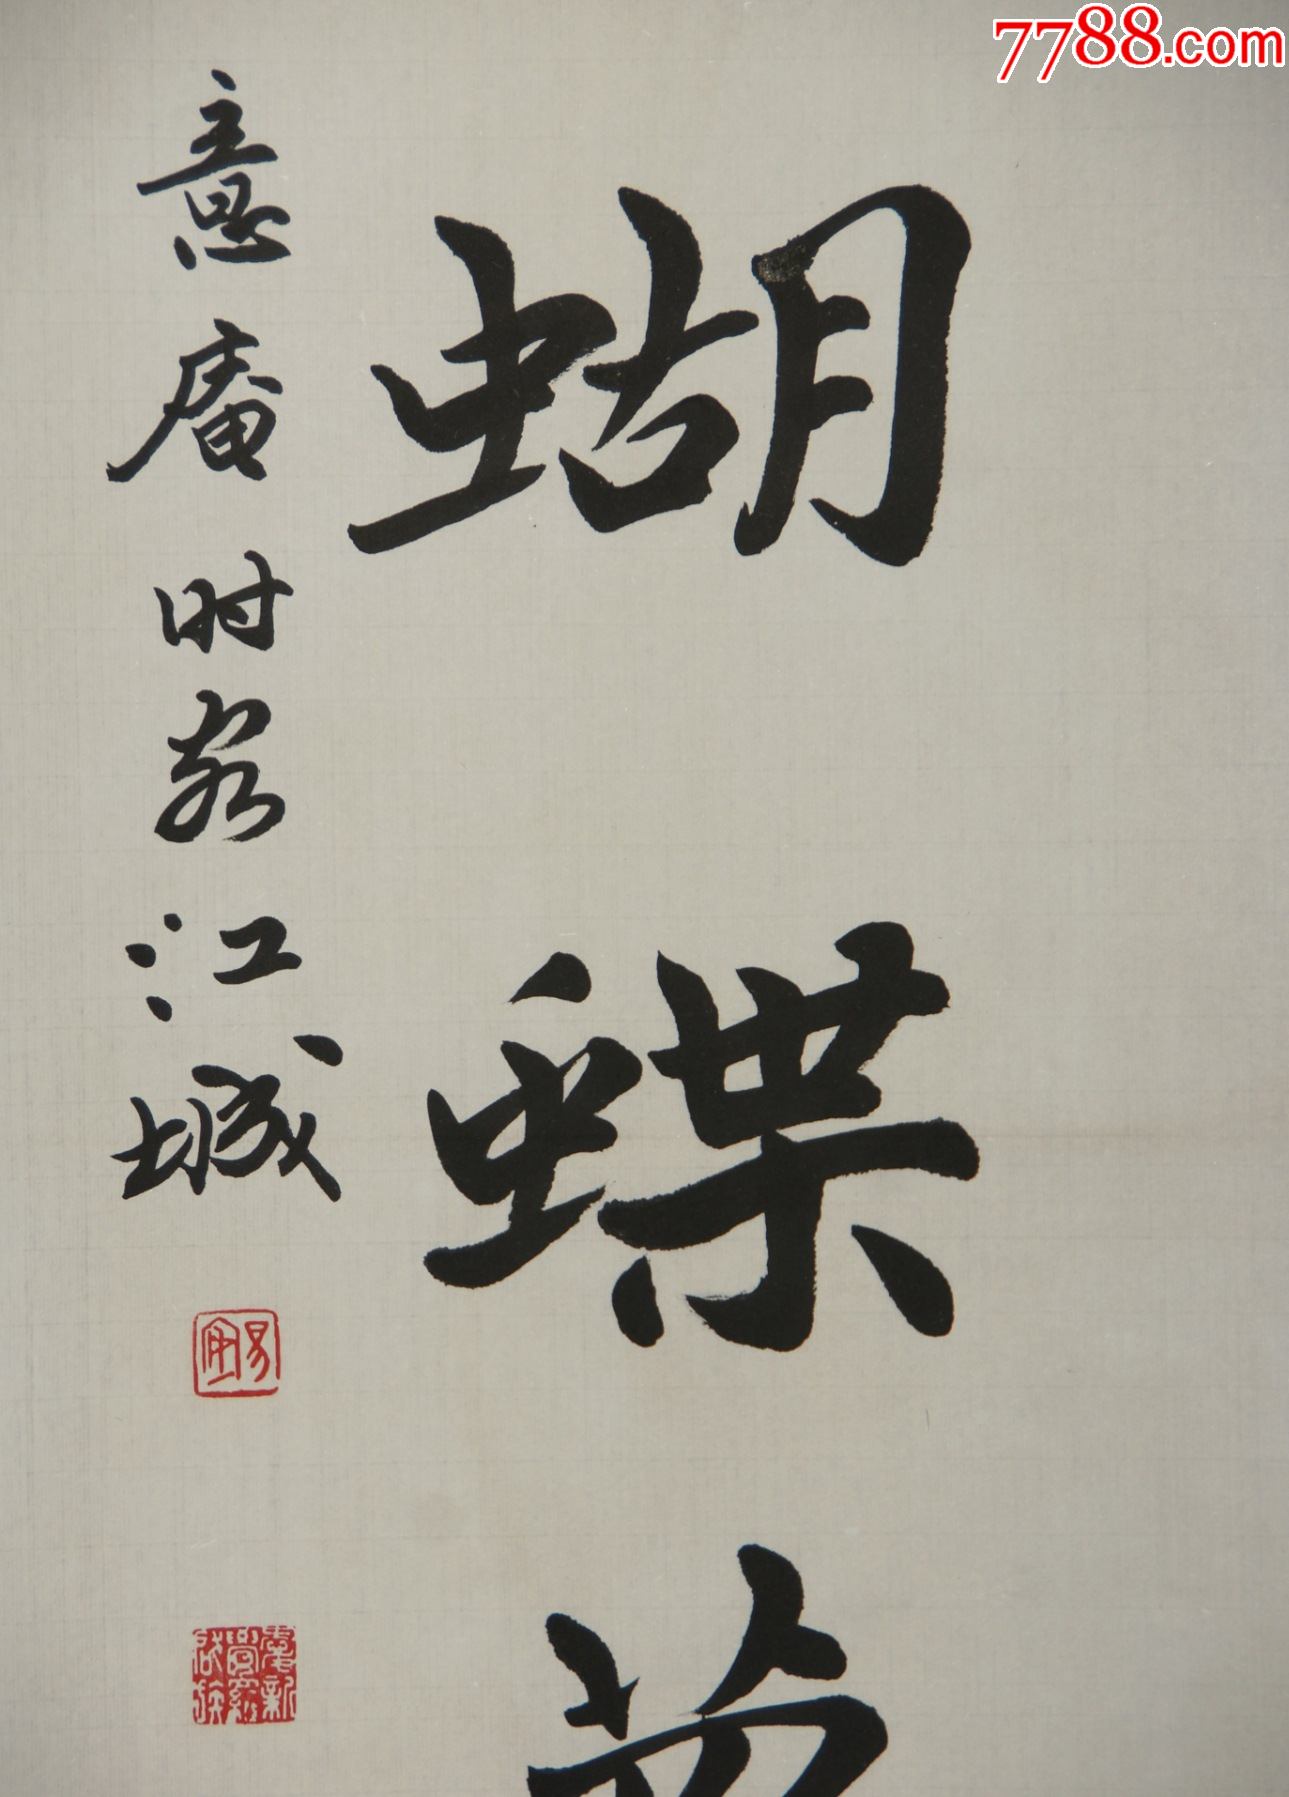 7788.com
蝴蝶
意庵时客江城